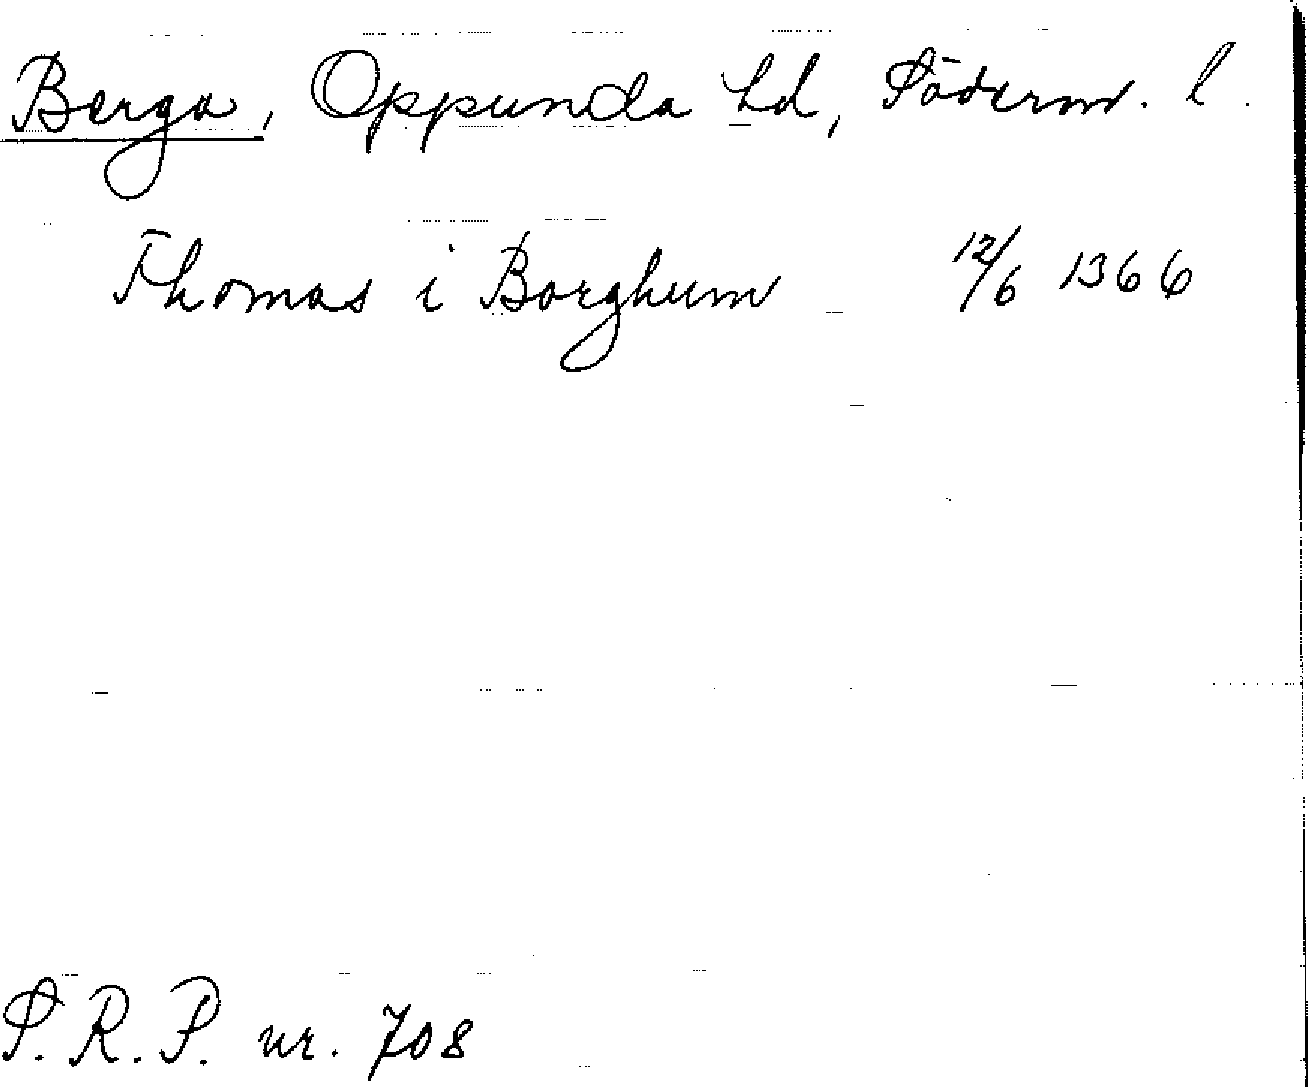 Berga, Oppunda hd, Söderm. l.
Thomas i Borghum 12/6 1366
S. R. P. nr. 708